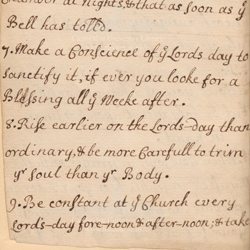 Chamber at Nights, & that as soon as ye
Bell has toll'd.
7. Make a Conscience of ye Lords day to
Sanctify it, if ever you looke for a
Blessing all ye Weeke after.
8. Rise earlier on the Lords-day than
ordinary, & be more Carefull to trim
yr Soul than yr Body.
9. Be constant at ye Church every
Lords-day fore-noon & after-noon; & take